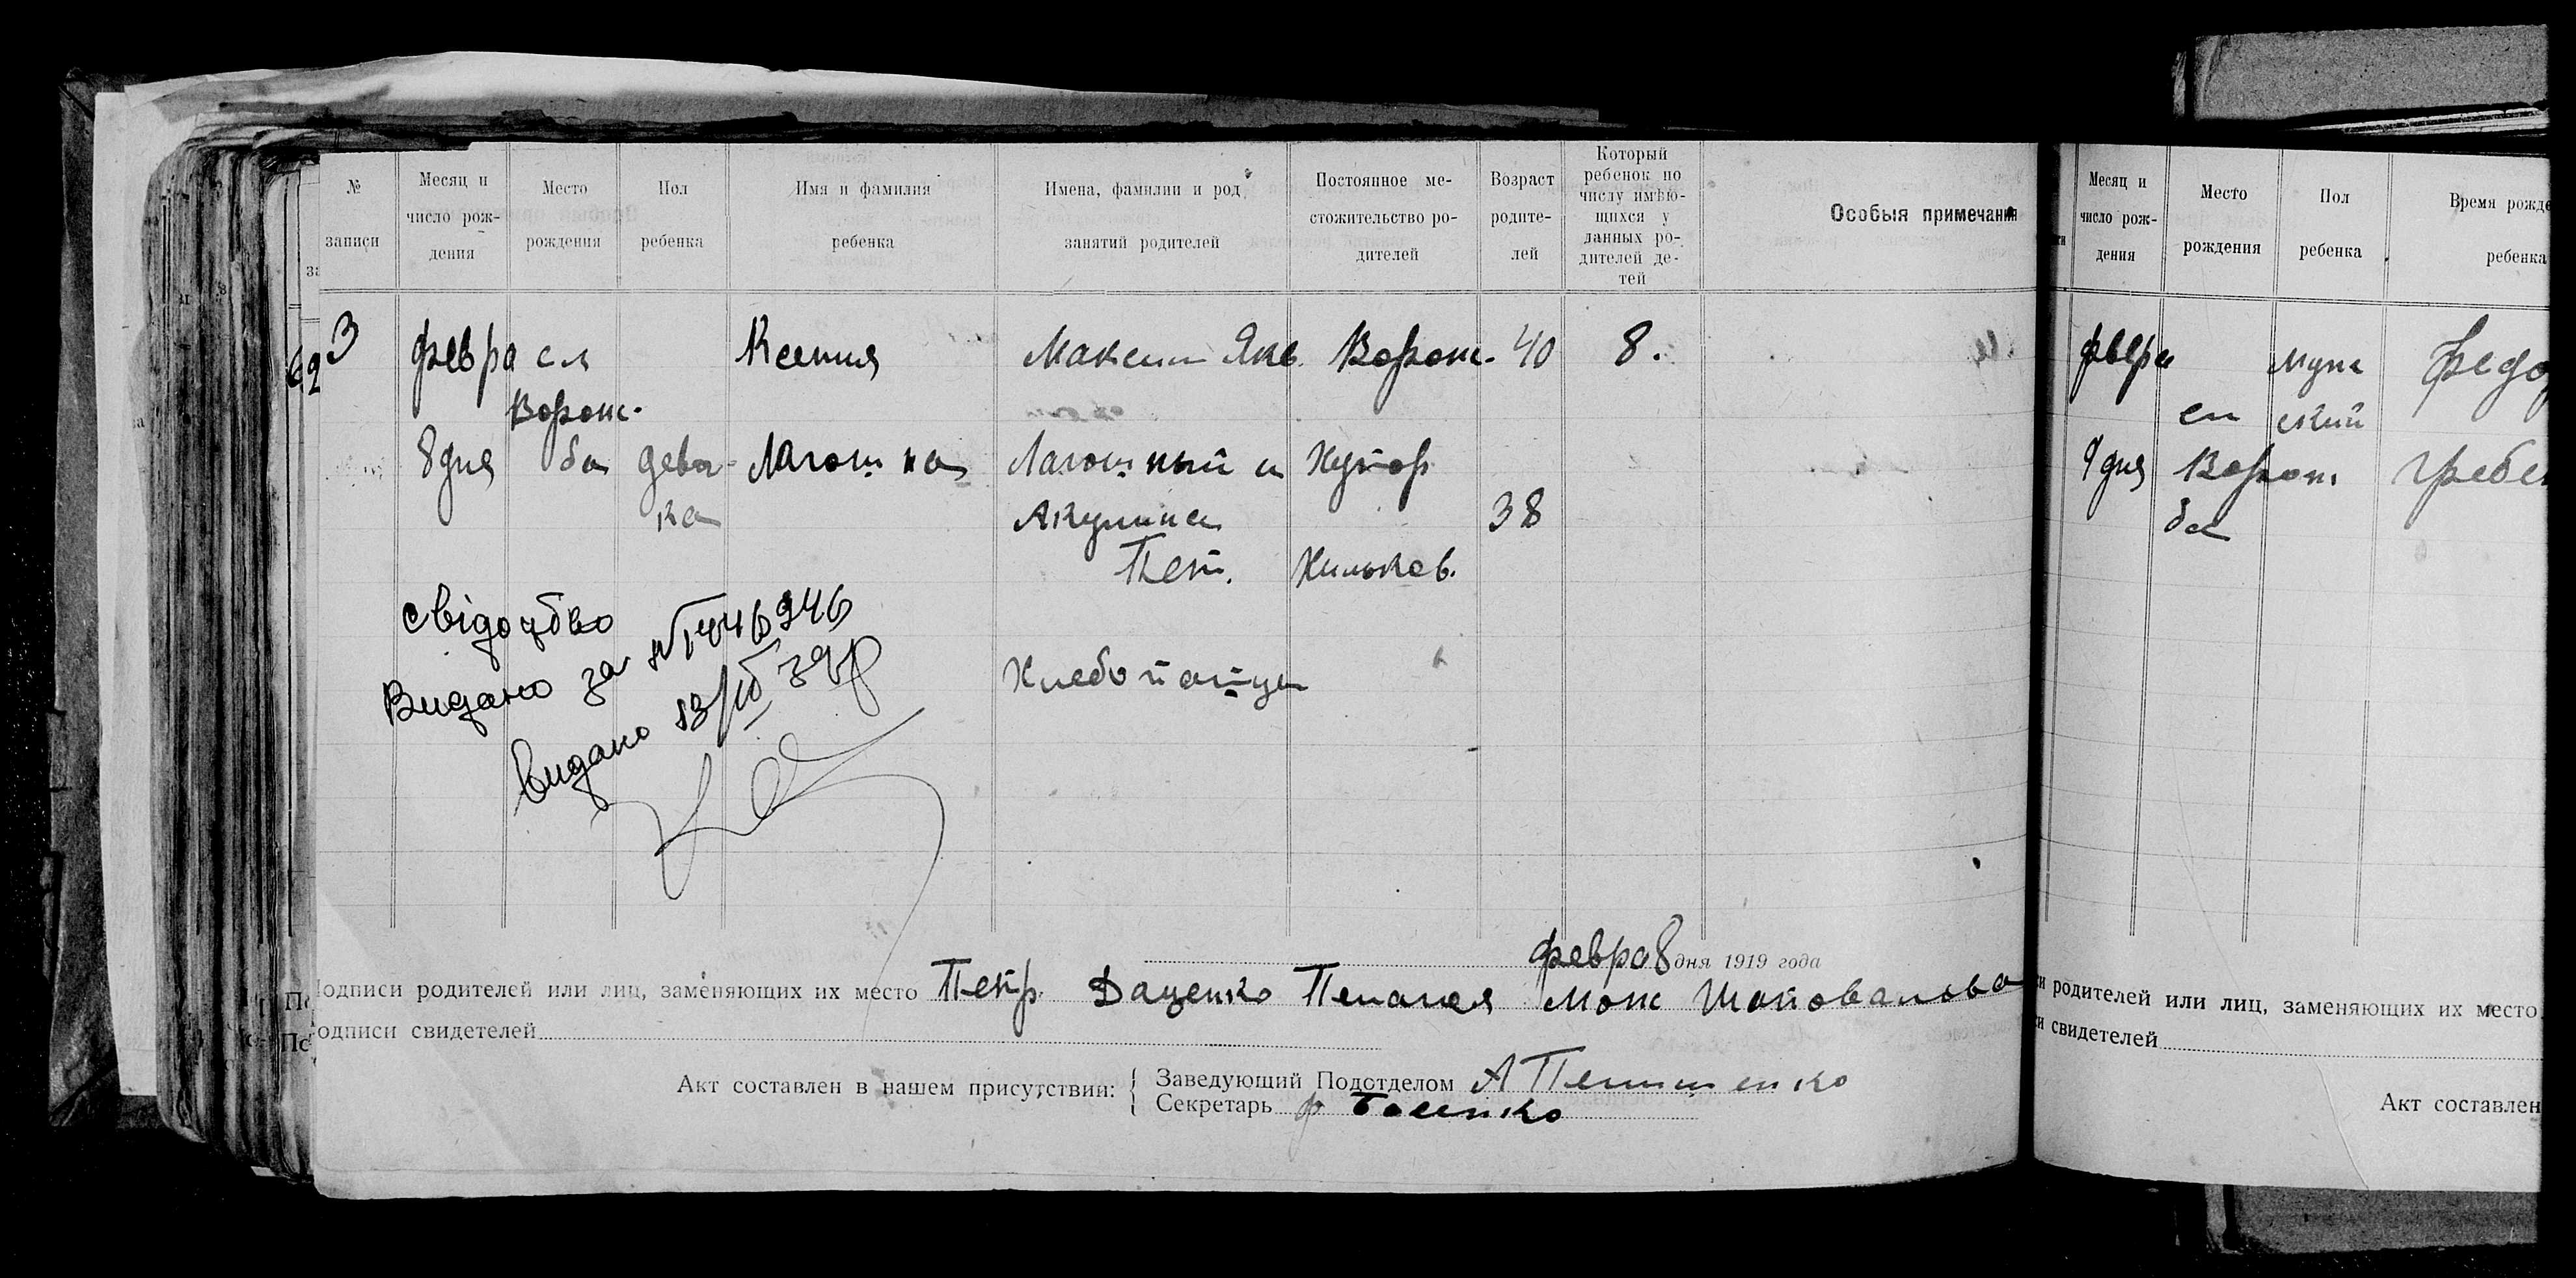 № записи
Месяц и число рождения
Место рождения
Пол ребенка
Имя и фамилия ребенка
Имена, фамилии и род занятий родителей
Постоянное местожительство родителей
Возраст родителей
Который ребенок по числу имѣющихся у данных родителей детей
Особыя примечания
3 февра сл Ксения Максим Яков Ворож. 40 8.
Ворож.
8 дня ба дево- Лагошна Лагошный и Хутор
ка Акулина 38
Пет. Хильков.
свідоцтво
Видано за
Видано
Хлебопашцы
февра 8 дня 1919 года
Подписи родителей или лиц, заменяющих их место Петр Даценко Пелагея Мож Шаповалова
Подписи свидетелей
Акт составлен в нашем присутствии:
Заведующий Подотделом А
Секретарь
Месяц и число рождения
Место рождения
Пол ребенка
Время рожде
ребенка
муж
ский
сл
9 дня
ба
и родителей или лиц, заменяющих их место
и свидетелей
Акт составлен